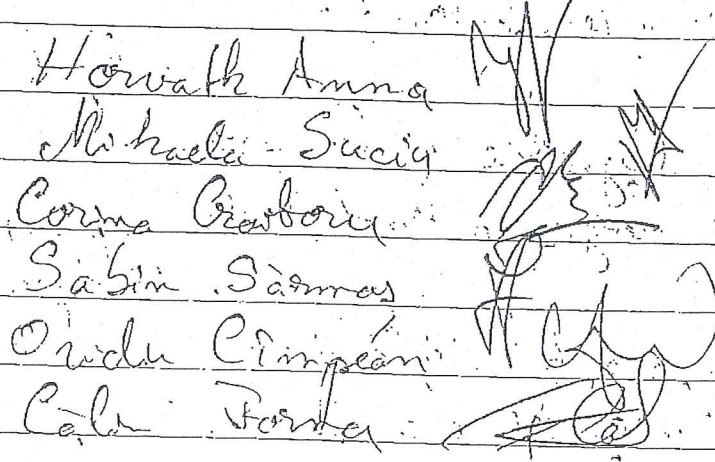 Horvath Anna
Mihaela Suciu
Corina Croitoru
Sabin Sărmaș
Ovidiu Cîmpean
Călin Forț